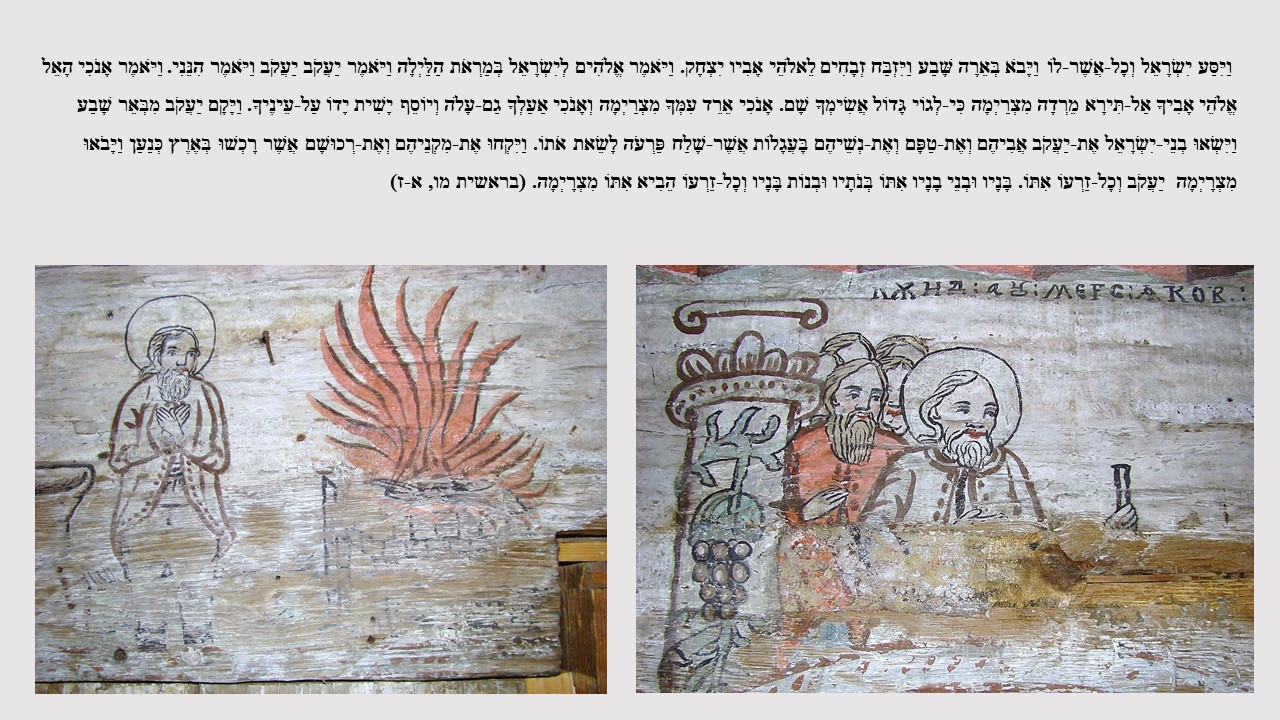 וַיִּסַּע יִשְׂרָאֵל וְכָל-אֲשֶׁר-לוֹ וַיָּבֹא בְּאֵרָה שָּׁבַע וַיִּזְבַּח זְבָחִים לֵאלֹהֵי אָבִיו יִצְחָק. וַיֹּאמֶר אֱלֹהִים לְיִשְׂרָאֵל בְּמַרְאֹת הַלַּיְלָה וַיֹּאמֶר יַעֲקֹב יַעֲקֹב וַיֹּאמֶר הִנֵּנִי. וַיֹּאמֶר אָנֹכִי הָאֵל
אֱלֹהֵי אָבִיךָ אַל-תִּירָא מֵרְדָה מִצְרַיְמָה כִּי-לְגוֹי גָּדוֹל אֲשִׂימְךָ שָׁם. אָנֹכִי אֵרֵד עִמְּךָ מִצְרַיְמָה וְאָנֹכִי אַעַלְךָ גַם-עָלֹה וְיוֹסֵף יָשִׁית יָדוֹ עַל-עֵינֶיךָ. וַיָּקָם יַעֲקֹב מִבְּאֵר שָׁבַע
וַיִּשְׂאוּ בְנֵי-יִשְׂרָאֵל אֶת-יַעֲקֹב אֲבִיהֶם וְאֶת-טַפָּם וְאֶת-נְשֵׁיהֶם בָּעֲגָלוֹת אֲשֶׁר-שָׁלַח פַּרְעֹה לָשֵׂאת אֹתוֹ. וַיִּקְחוּ אֶת-מִקְנֵיהֶם וְאֶת-רְכוּשָׁם אֲשֶׁר רָכְשׁוּ בְּאֶרֶץ כְּנַעַן וַיָּבֹאוּ
מִצְרָיְמָה יַעֲקֹב וְכָל-זַרְעוֹ אִתּוֹ. בָּנָיו וּבְנֵי בָנָיו אִתּוֹ בְּנֹתָיו וּבְנוֹת בָּנָיו וְכָל-זַרְעוֹ הֵבִיא אִתּוֹ מִצְרָיְמָה. (בראשית מו, א-ז)